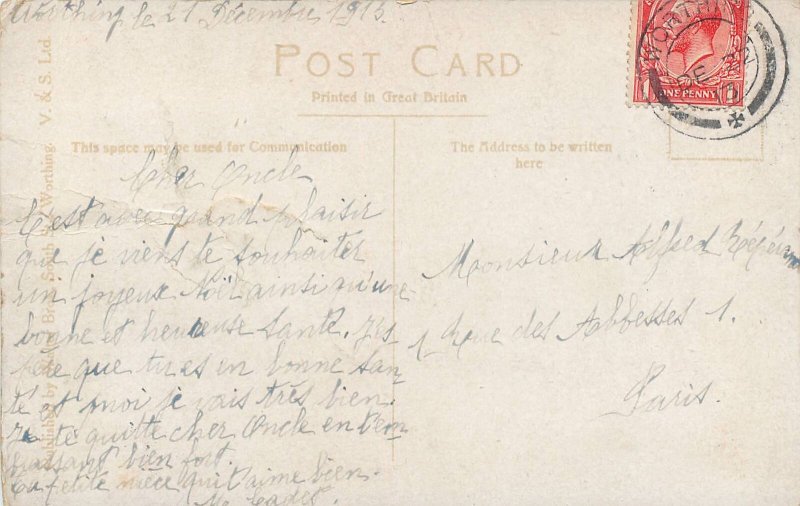 Worthing le 21 Décembre 1913.
POST CARD
Printed in Great Britain
This space may be used for Communication
The Address to be written
here
V. & S. Ltd.
Worthing.
ONE PENNY
WORTHING
Cher Oncle
C'est avec grand plaisir
que je viens te souhaiter
un joyeux Noël ainsi qu'une
bonne et heureuse santé. J'es
père que tu es en bonne san-
té et moi je vais très bien.
Je te quitte cher Oncle en t'em
brassant bien fort.
Ta petite nièce qui t'aime bien.
M. Cadet.
Monsieur Alfred
1 Rue des Abbesses 1.
Paris.